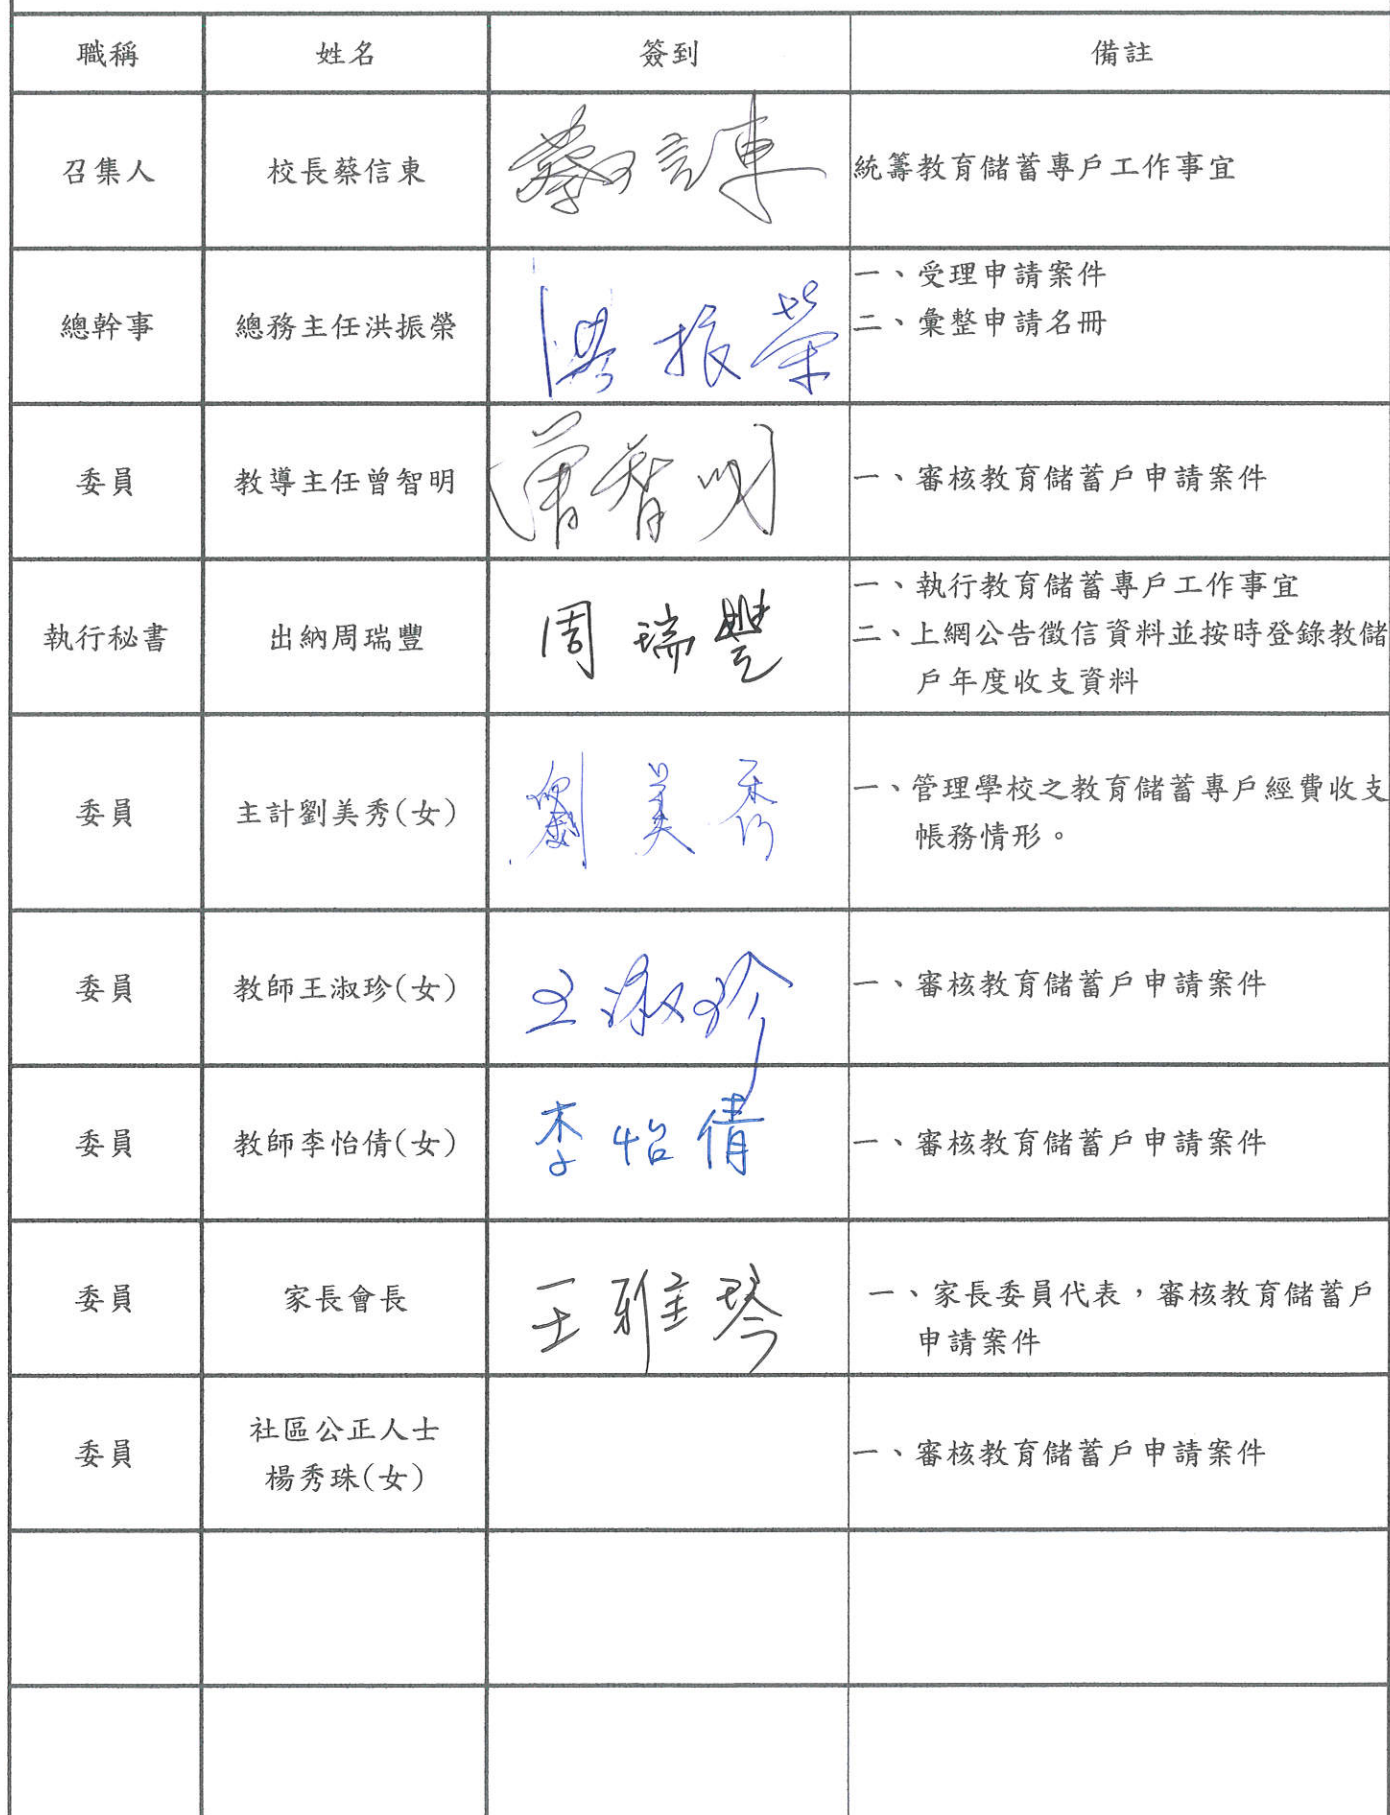 職稱 姓名 簽到 備註
召集人 校長蔡信東 蔡信東 統籌教育儲蓄專戶工作事宜
總幹事 總務主任洪振榮 洪振榮 一、受理申請案件
二、彙整申請名冊
委員 教導主任曾智明 曾智明 一、審核教育儲蓄戶申請案件
執行秘書 出納周瑞豐 周瑞豐 一、執行教育儲蓄專戶工作事宜
二、上網公告徵信資料並按時登錄教儲
戶年度收支資料
委員 主計劉美秀(女) 劉美秀 一、管理學校之教育儲蓄專戶經費收支
帳務情形。
委員 教師王淑珍(女) 王淑珍 一、審核教育儲蓄戶申請案件
委員 教師李怡倩(女) 李怡倩 一、審核教育儲蓄戶申請案件
委員 家長會長 王雅琴 一、家長委員代表，審核教育儲蓄戶
申請案件
委員 社區公正人士
楊秀珠(女) 一、審核教育儲蓄戶申請案件